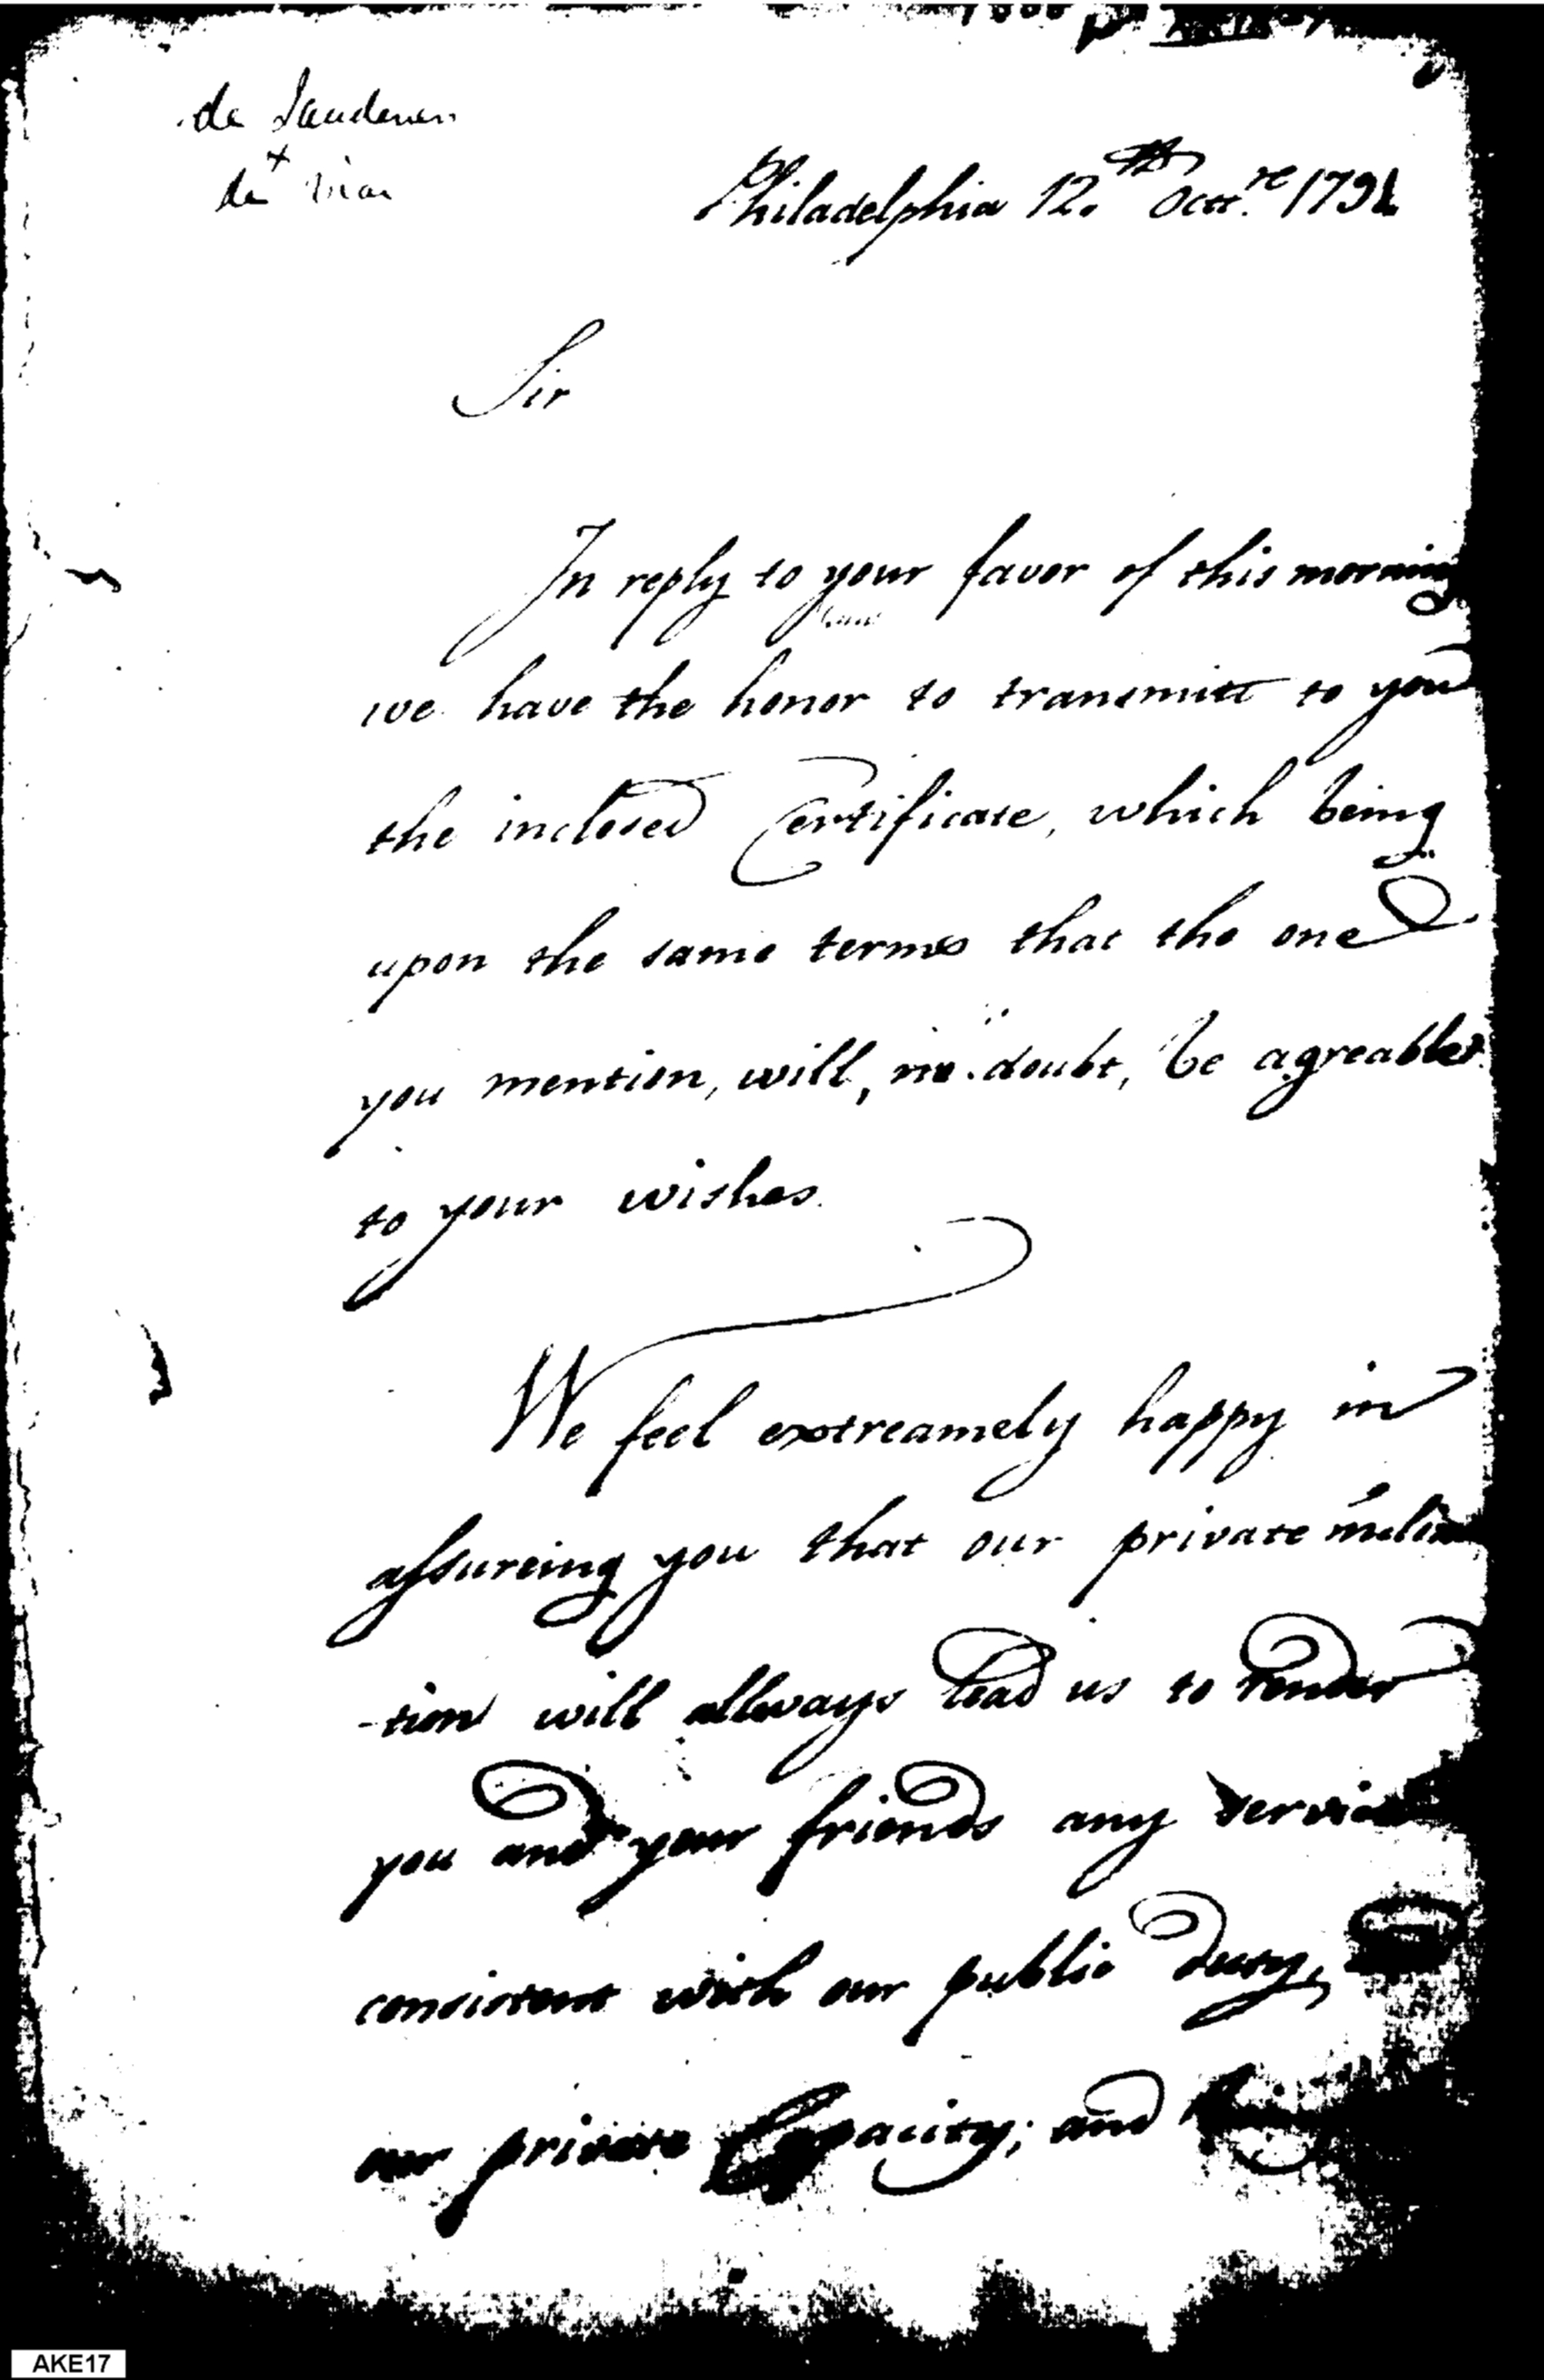 de
de
Philadelphia 12.th Octr.re 1791
Sir
In reply to your favor of this morning
we have the honor to transmitt to you
the inclosed Certificate, which being
upon the same terms that the one
you mention, will, no doubt, be agreable
to your wishes.
We feel extreamely happy in
assureing you that our private
-tion will allways lead us to render
you and your friends any service
consistent with our public duty,
our private Capacity; and
AKE17